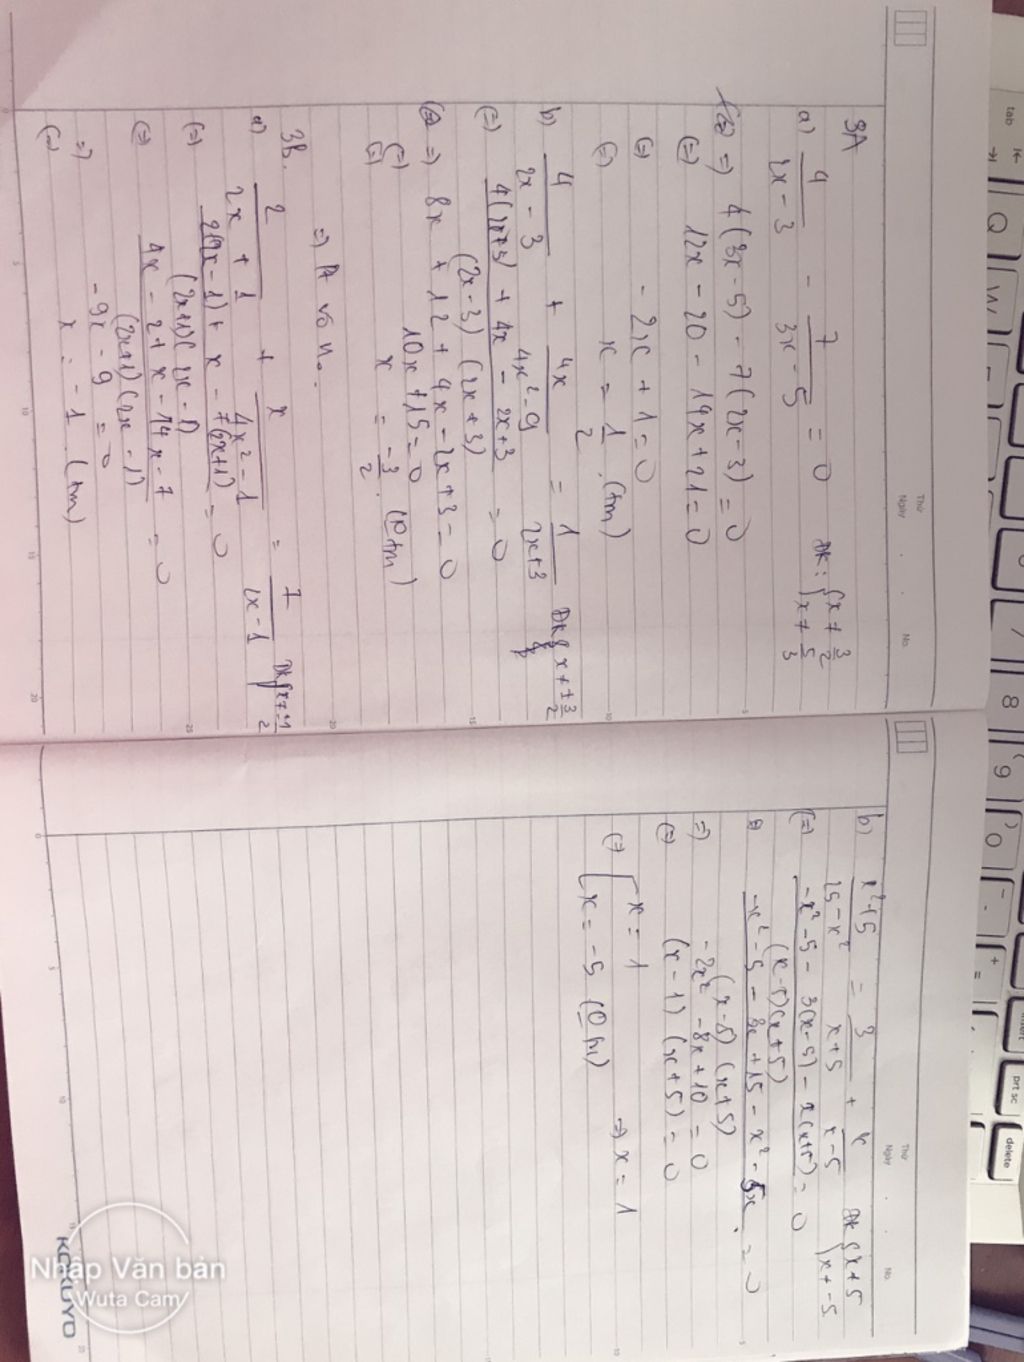 3A
a) 4/(2x - 3) - 7/(3x - 5) = 0 ĐK: { x ≠ 3/2
x ≠ 5/3
(=) => 4(3x - 5) - 7(2x - 3) = 0
(=) 12x - 20 - 14x + 21 = 0
(=) - 2x + 1 = 0
(=) x = 1/2 (tm)
b) 4/(2x - 3) + 4x/(4x² - 9) = 1/(2x+3) ĐK { x ≠ ±3/2
(=) (4(2x+3) + 4x - 2x+3)/((2x-3)(2x+3)) = 0
(=) => 8x + 12 + 4x - 2x + 3 = 0
(=) 10x + 15 = 0
(=) x = -3/2 (0 tm)
=) Pt vô n°.
3B.
a) 2/(2x + 1) + x/(4x² - 1) = 7/(2x - 1)
(=) (2(2x - 1) + x - 7(2x+1))/((2x+1)(2x - 1)) = 0
(=) (4x - 2 + x - 14x - 7)/((2x+1)(2x - 1)) = 0
=) - 9x - 9 = 0
(=) x = - 1 (tm)
b) (x²+5)/(25 - x²) = 3/(x+5) + x/(x - 5) ĐK { x ≠ 5
x ≠ -5
(=) (-x² - 5 - 3(x - 5) - x(x+5))/((x-5)(x+5)) = 0
(-x² - 5 - 3x + 15 - x² - 5x)/((x-5)(x+5)) = 0
=) - 2x² - 8x + 10 = 0
(=) (x - 1)(x + 5) = 0
(=) [ x = 1 => x = 1
x = -5 (0 tm)
Thứ
Ngày . . No.
Thứ
Ngày . . No.
KOKUYO
Nhập Văn bản
Wuta Cam
tab
Q
W
7
8
9
0
prt sc
delete